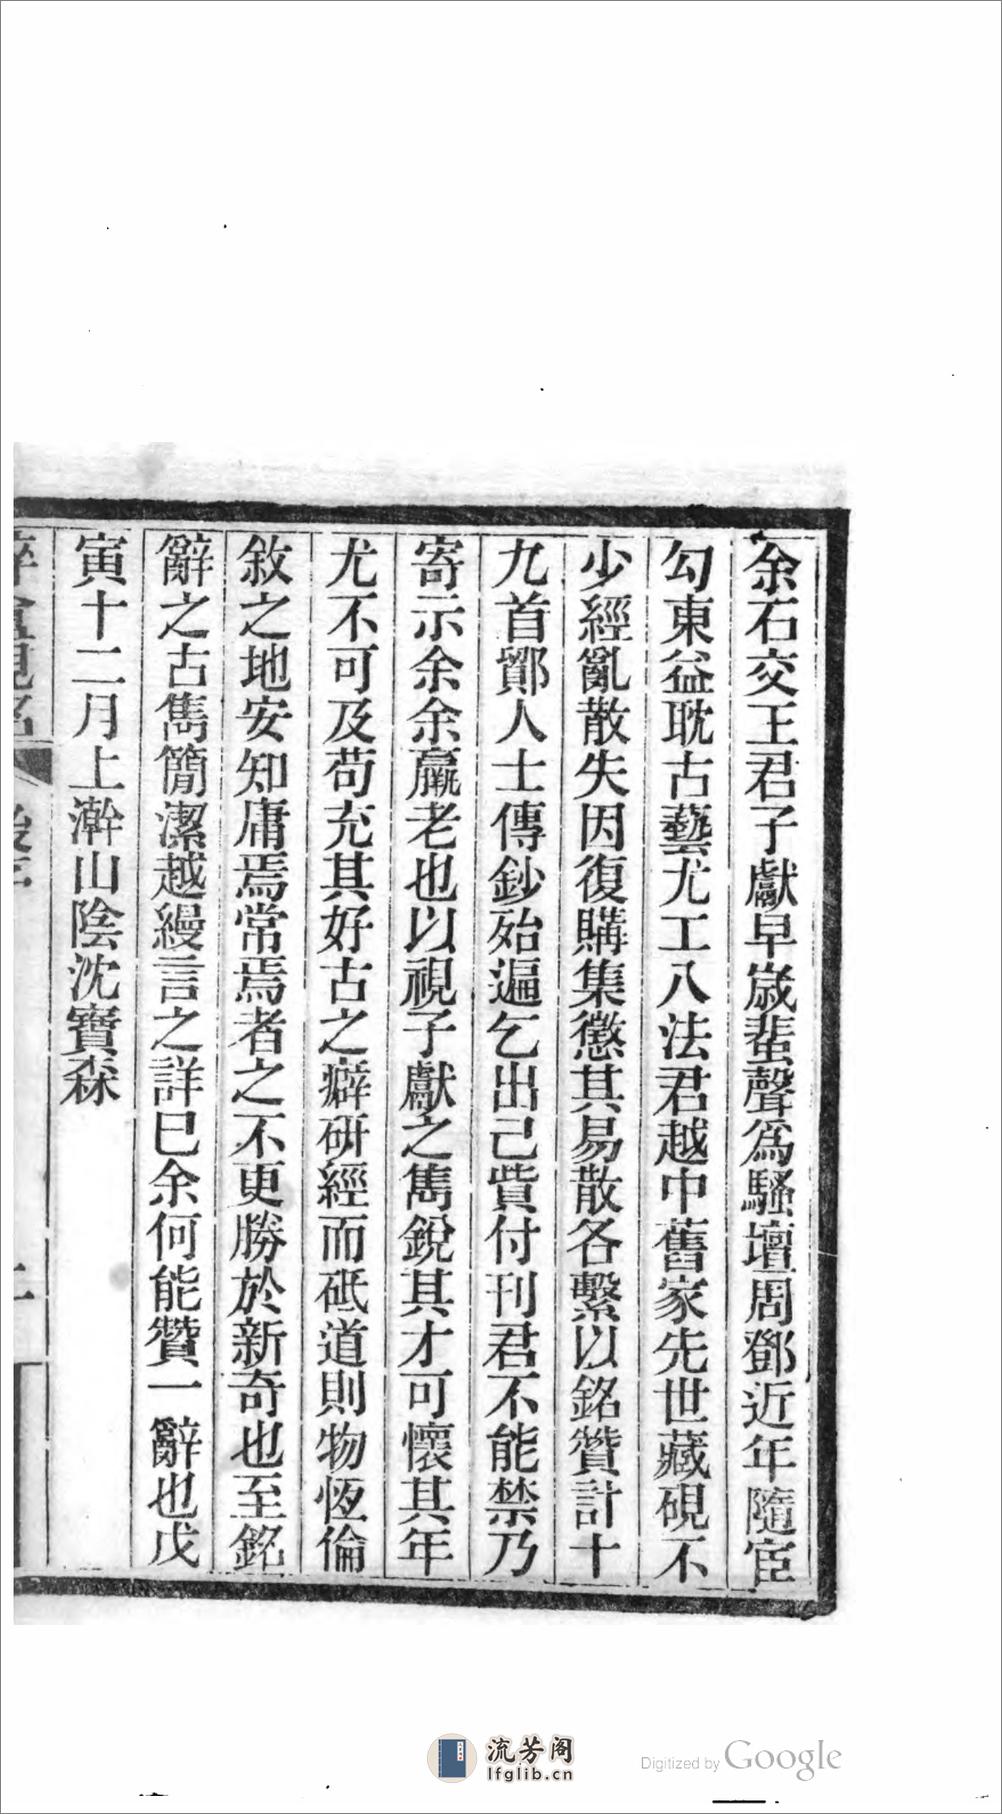 余石交王君子獻早歲蜚聲為騷壇周鄧近年隨宦
勾東益耽古藝尤工八法君越中舊家先世藏硯不
少經亂散失因復購集懲其易散各繫以銘贊計十
九首鄞人士傳鈔殆遍乞出己貲付刊君不能禁乃
寄示余余羸老也以視子獻之雋銳其才可懷其年
尤不可及苟充其好古之癖研經而砥道則物恆倫
敘之地安知庸焉常焉者之不更勝於新奇也至銘
辭之古雋簡潔越縵言之詳巳余何能贊一辭也戊
寅十二月上澣山陰沈寶森
流芳阁
lfglib.cn
Digitized by Google